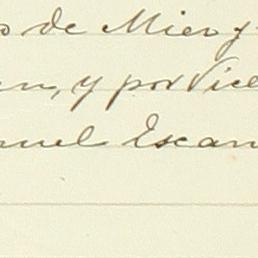 de Mier y
en, y por Vice
nuel Escan